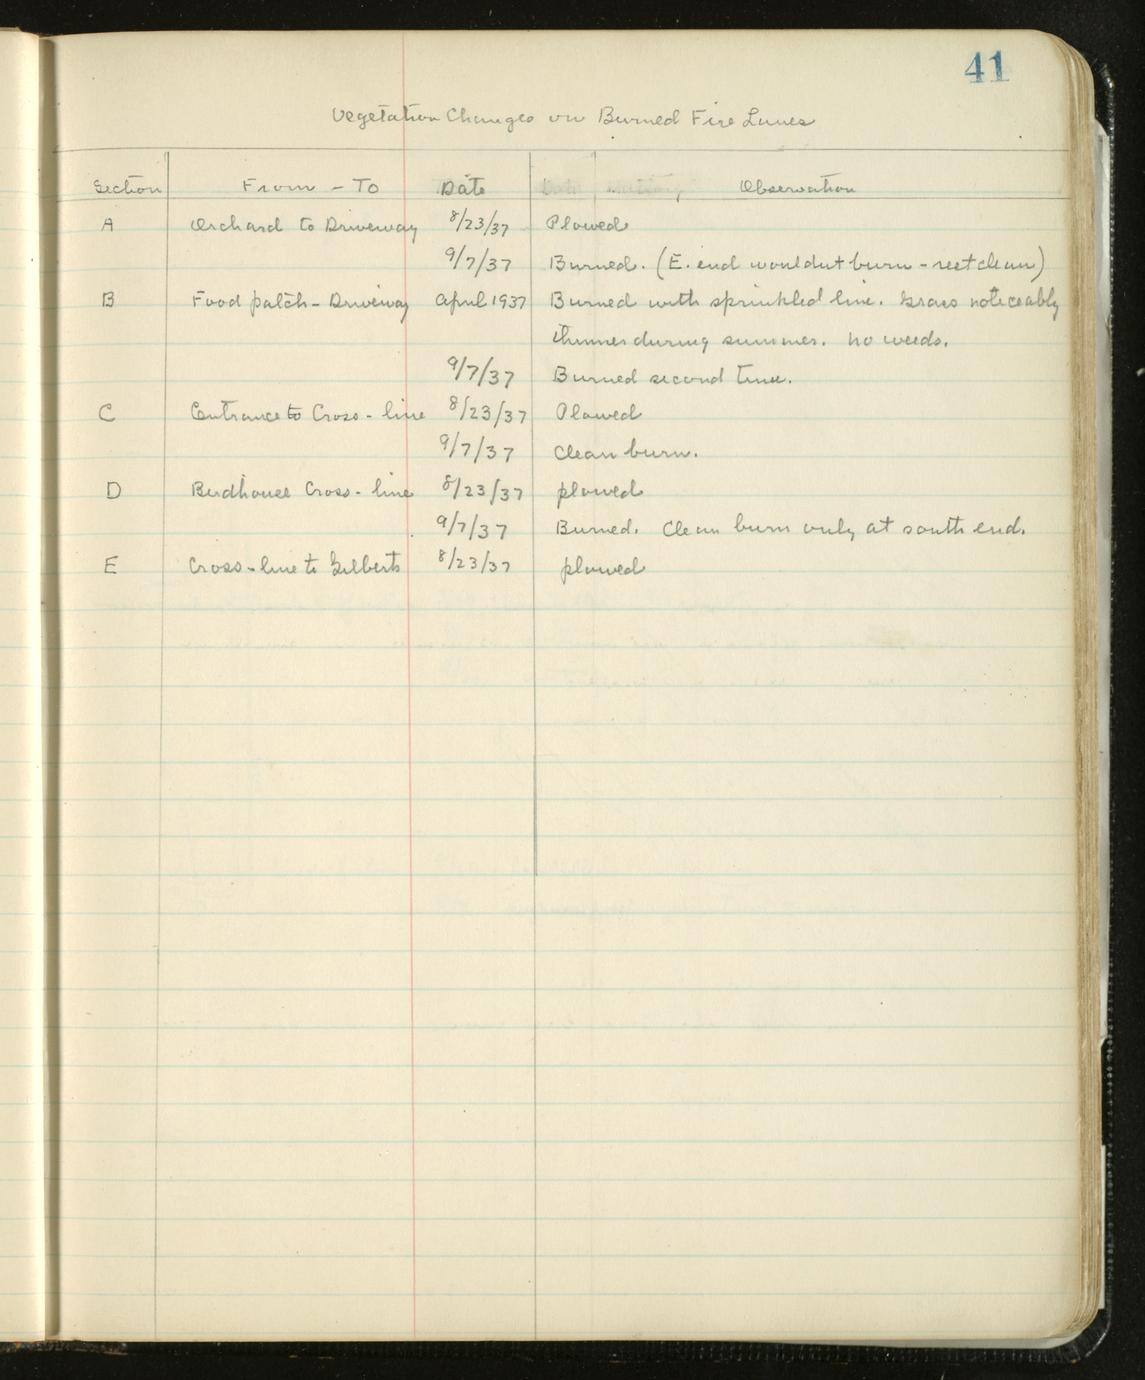 41
Vegetation Changes on Burned Fire Lanes
Section From - To Date Observation
A Orchard to Driveway 8/23/37 Plowed
9/7/37 Burned. (E. end wouldnt burn - rest clean)
B Food patch - Driveway April 1937 Burned with sprinkled line. Grass noticeably
thinner during summer. no weeds.
9/7/37 Burned second time.
C Entrance to Cross-line 8/23/37 Plowed
9/7/37 Clean burn.
D Birdhouse Cross-line 8/23/37 plowed
9/7/37 Burned. Clean burn only at south end.
E Cross-line to Gilberts 8/23/37 plowed